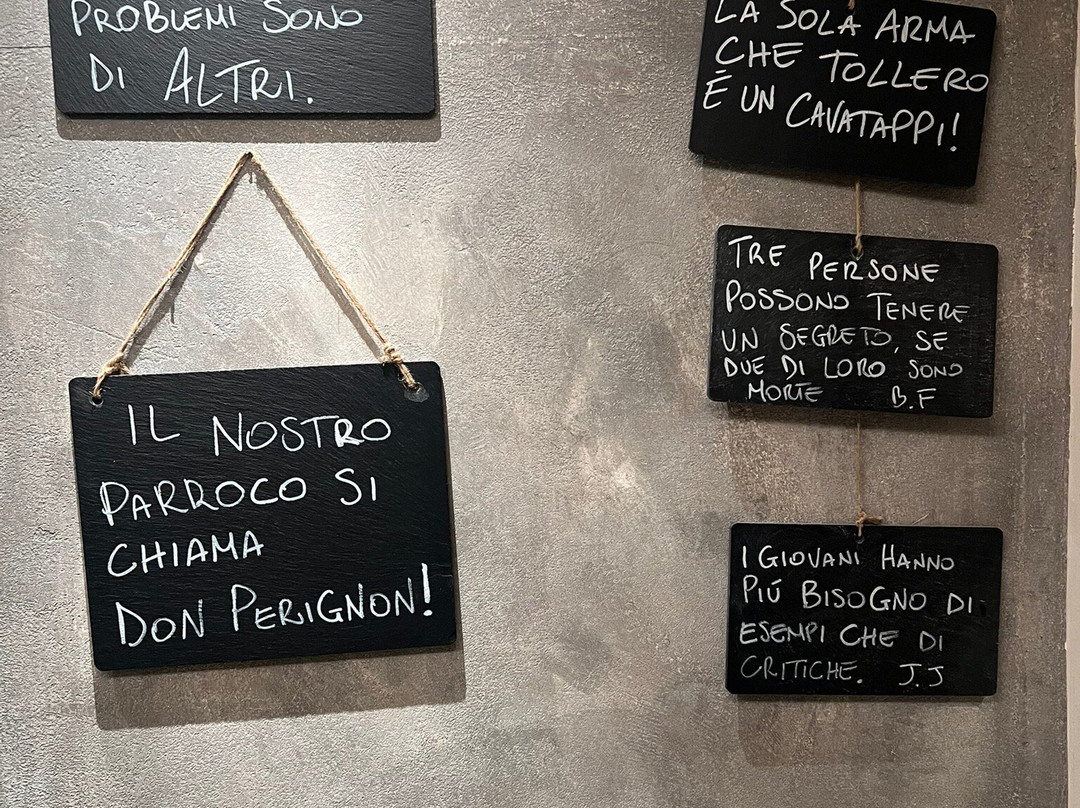 PROBLEMI SONO
DI ALTRI.
IL NOSTRO
PARROCO SI
CHIAMA
DON PERIGNON!
LA SOLA ARMA
CHE TOLLERO
È UN CAVATAPPI!
TRE PERSONE
POSSONO TENERE
UN SEGRETO, SE
DUE DI LORO SONO
MORTE B.F
I GIOVANI HANNO
PIÚ BISOGNO DI
ESEMPI CHE DI
CRITICHE. J.J